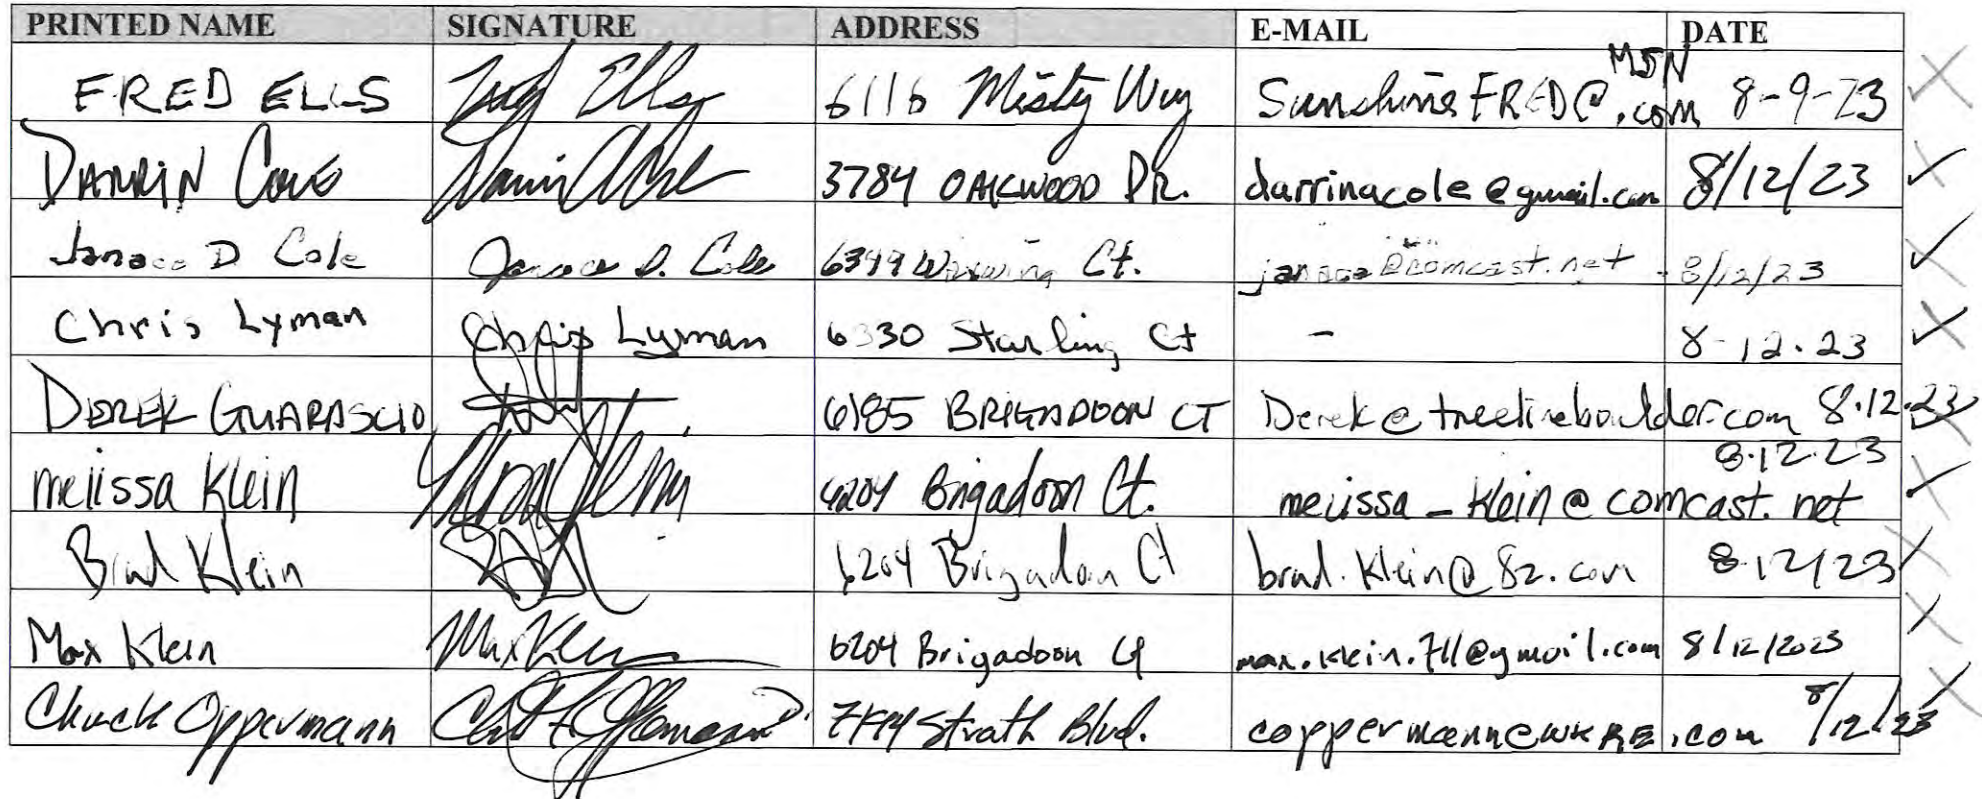 PRINTED NAME SIGNATURE ADDRESS E-MAIL DATE
FRED ELLS Fred Ells 6116 Misty Wy SunshineFRED@MSN.com 8-9-23
DARRIN COLE 3784 OAKWOOD DR. darrinacole@gmail.com 8/12/23
Janace D Cole Janace D. Cole 6349 Waxwing Ct. janace@comcast.net 8/12/23
Chris Lyman Chris Lyman 6330 Starling Ct - 8-12.23
DEREK GUARASCIO 6185 BRIGADOON CT Derek@treelineboulder.com 8.12.23
melissa Klein 6204 Brigadoon Ct. melissa_klein@comcast.net 8.12.23
Brad Klein 6204 Brigadoon Ct brad.klein@8z.com 8.12/23
Max Klein Max Klein 6204 Brigadoon Ct max.klein.711@gmail.com 8/12/2023
Chuck Oppermann Strath Blvd. coppermann@WKRE.com 8/12/23